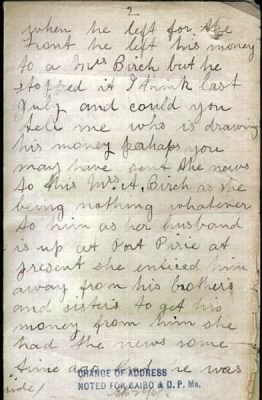 2
when he left for the
front he left his money
to a Mrs Birch but he
stopped it I think last
July and could you
tell me who is drawing
his money perhaps you
may have sent the news
to this Mrs. A. Birch as she
being nothing whatever
to him as her husband
is up at Port Pirie at
present she enticed him
away from his brothers
and sisters to get his
money from him she
had the news some
time ago that he was
CHANGE OF ADDRESS
NOTED FOR CAIRO & D.P. Ms.